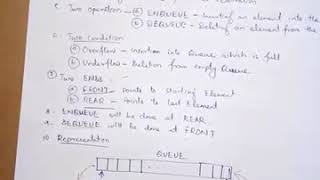 c. Two operation - (a) ENQUEUE - Inserting an element into the
(b) DEQUEUE - Deleting an element from the
d. Two Condition
(a) Overflow - Insertion into Queue which is full
(b) Underflow - Deletion from empty Queue.
Two ENDs :-
(a) FRONT - points to Starting Element
(b) REAR - Points to last Element
8. ENQUEUE will be done at REAR
9. DEQUEUE will be done at FRONT
10. Representation
QUEUE